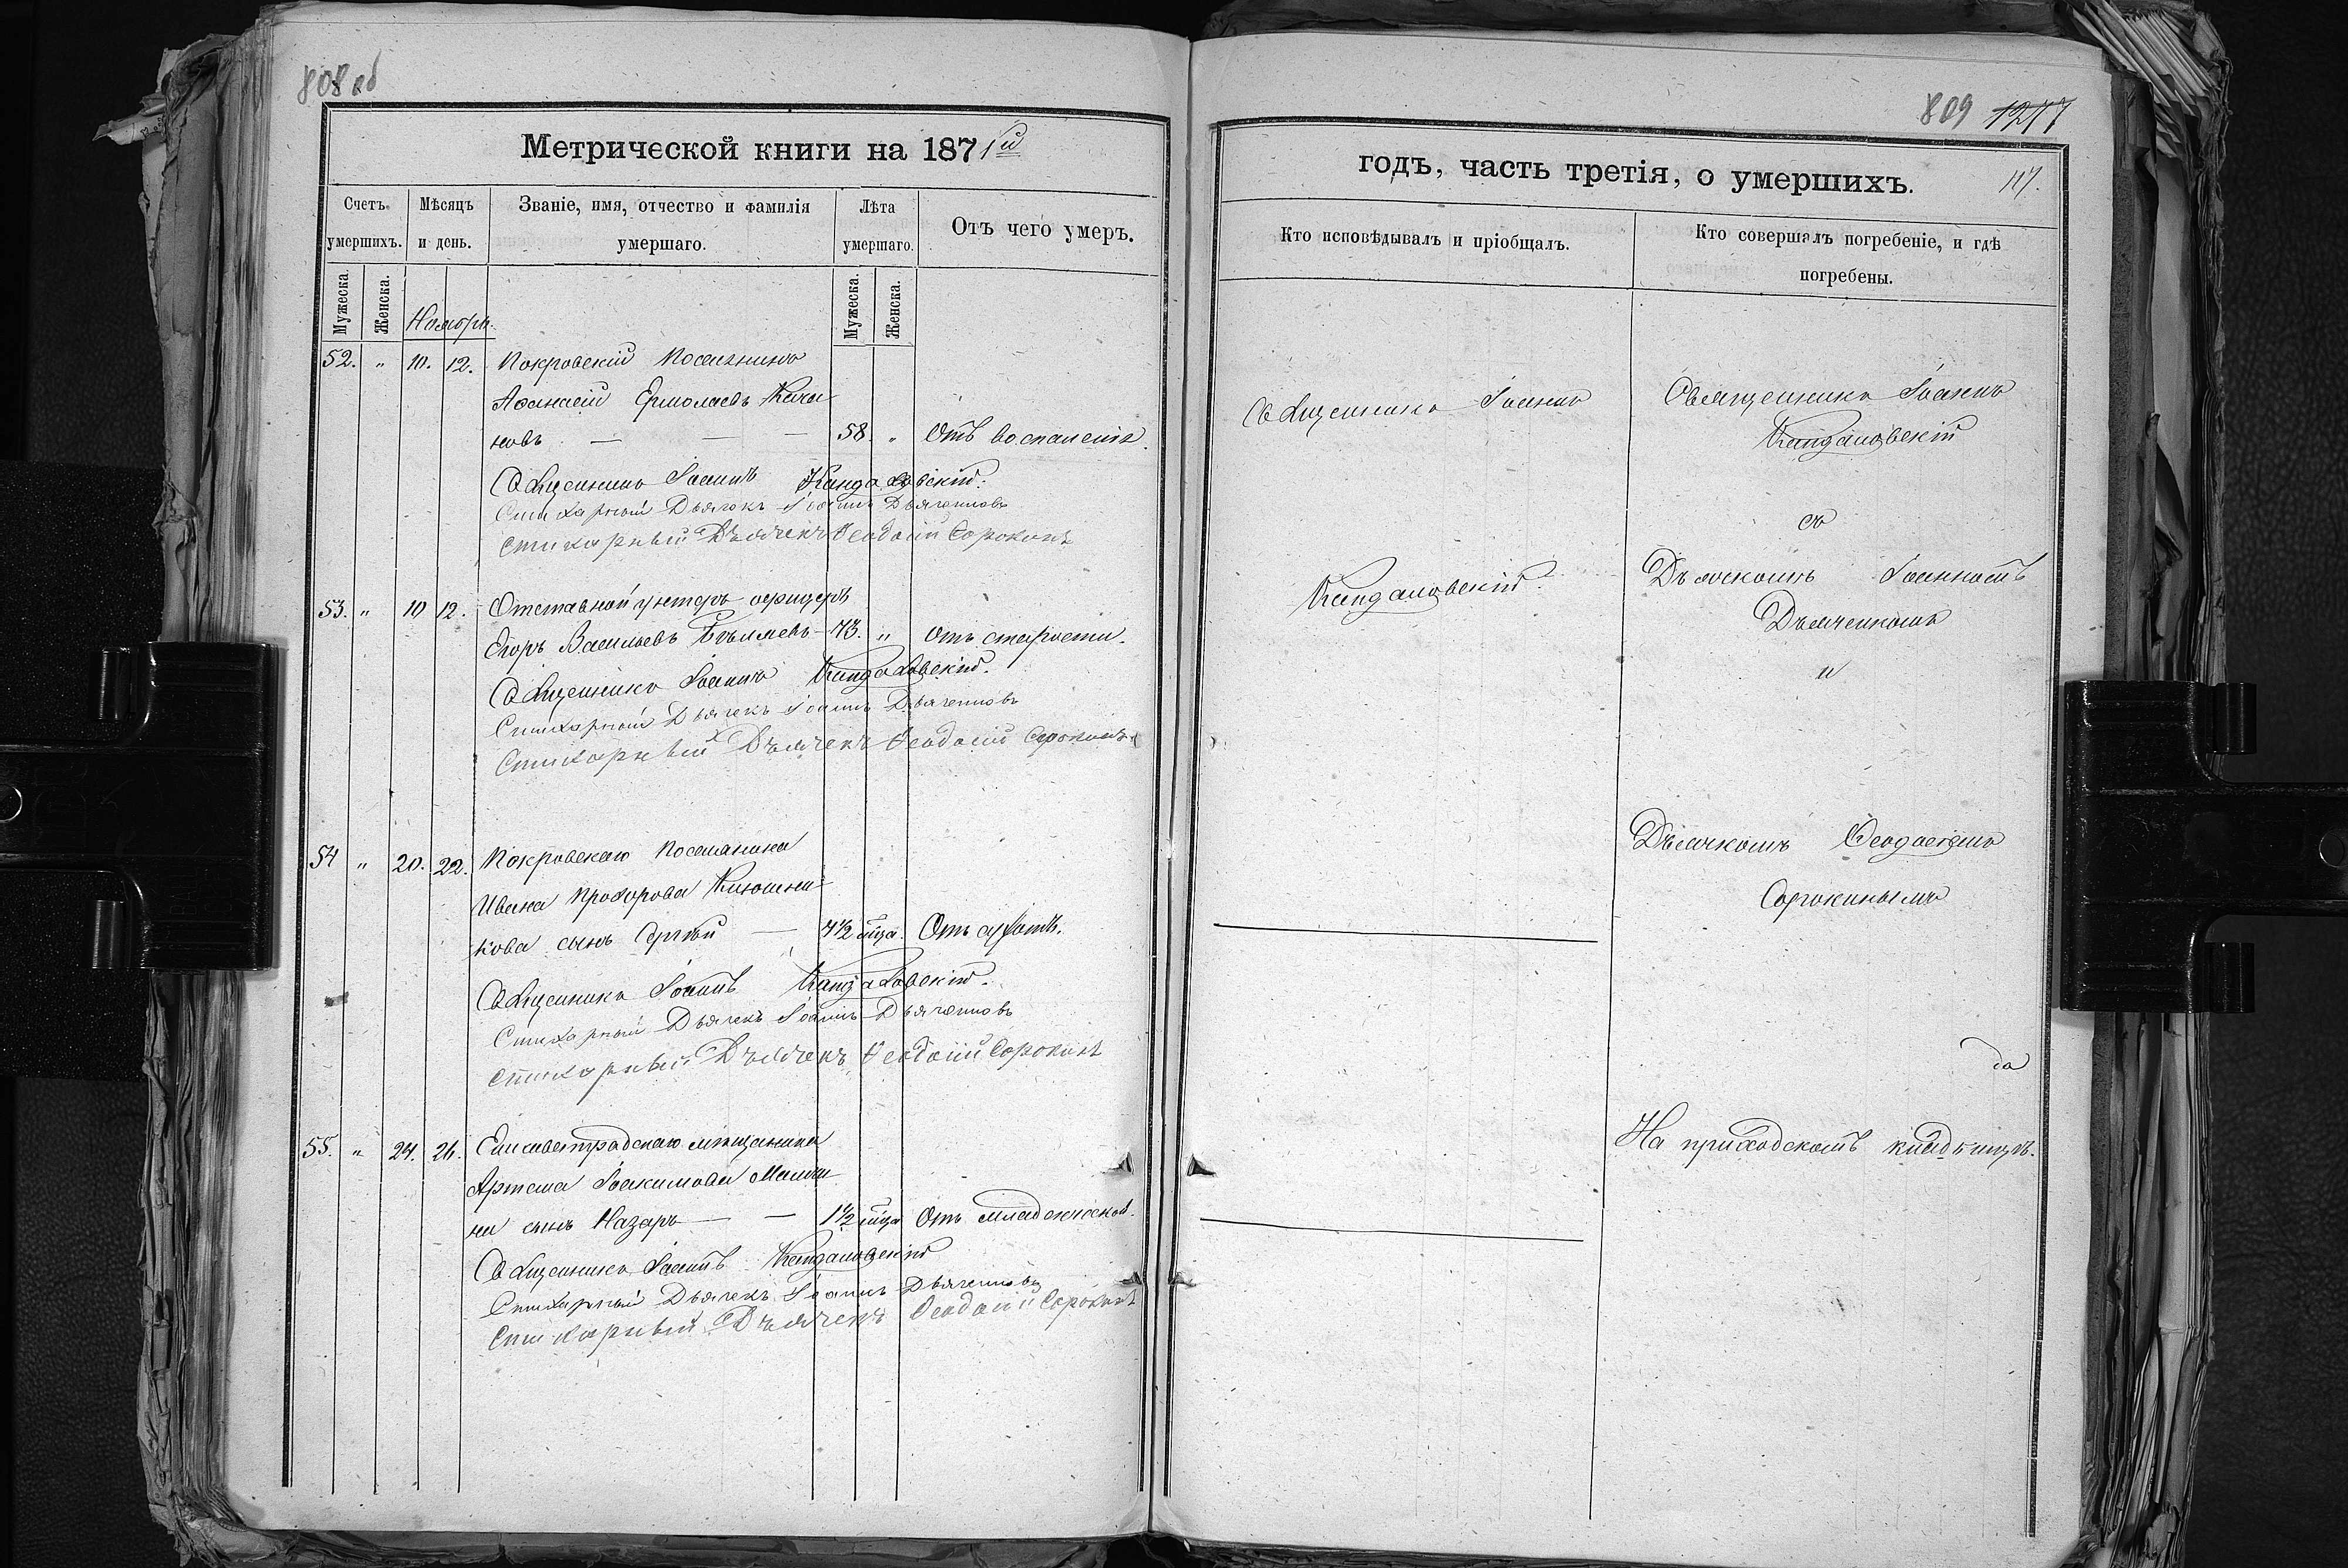 808 об
Метрической книги на 1871й
Счетъ умершихъ.
Мѣсяцъ и день.
Званіе, имя, отчество и фамилія умершаго.
Лѣта умершаго.
Отъ чего умеръ.
Мужеска.
Женска.
Ноябрь.
Мужеска.
Женска.
52. " 10. 12. Покровскій Поселянинъ
Аѳанасій Ермолаевъ
новъ — — — 58. " Отъ воспаленія.
Священникъ Іоаннъ Кандаловскій.
Стихарный Дьячекъ Іоаннъ Дьяченковъ
Стихарный Дъячекъ Ѳеодосій Сорокинъ
53. " 10 12. Отставной унтеръ офицеръ
Егоръ Васильевъ — 73. " Отъ старости.
Священникъ Іоаннъ Кандаловскій.
Стихарный Дьячекъ Іоаннъ Дьяченковъ
Стихарный Дъячекъ Ѳеодосій Сорокинъ
54 " 20. 22. Покровскаго Поселянина
Ивана Прохорова Клюшни
кова сынъ Сергѣй — 4½ мца. Отъ
Священникъ Іоаннъ Кандаловскій.
Стихарный Дьячекъ Іоаннъ Дьяченковъ
Стихарный Дъячекъ Ѳеодосій Сорокинъ
55. " 24. 26. Елисаветградскаго мѣщанина
Артема Іоакимова
на сынъ Назаръ — — 1½ мца Отъ младенческой.
Священникъ Іоаннъ Кандаловскій
Стихарный Дьячекъ Іоаннъ Дьяченковъ
Стихарный Дъячекъ Ѳеодосій Сорокинъ
809 1217
годъ, часть третія, о умершихъ.
117.
Кто исповѣдывалъ и пріобщалъ.
Кто совершалъ погребеніе, и гдѣ погребены.
Священникъ Іоаннъ
Кандаловскій.
Священникъ Іоаннъ
Кандаловскій
съ
Дъячкомъ Іоанномъ
Дьяченкомъ
и
Дъячкомъ Ѳеодосіемъ
Сорокинымъ
На приходскомъ кладбищѣ.